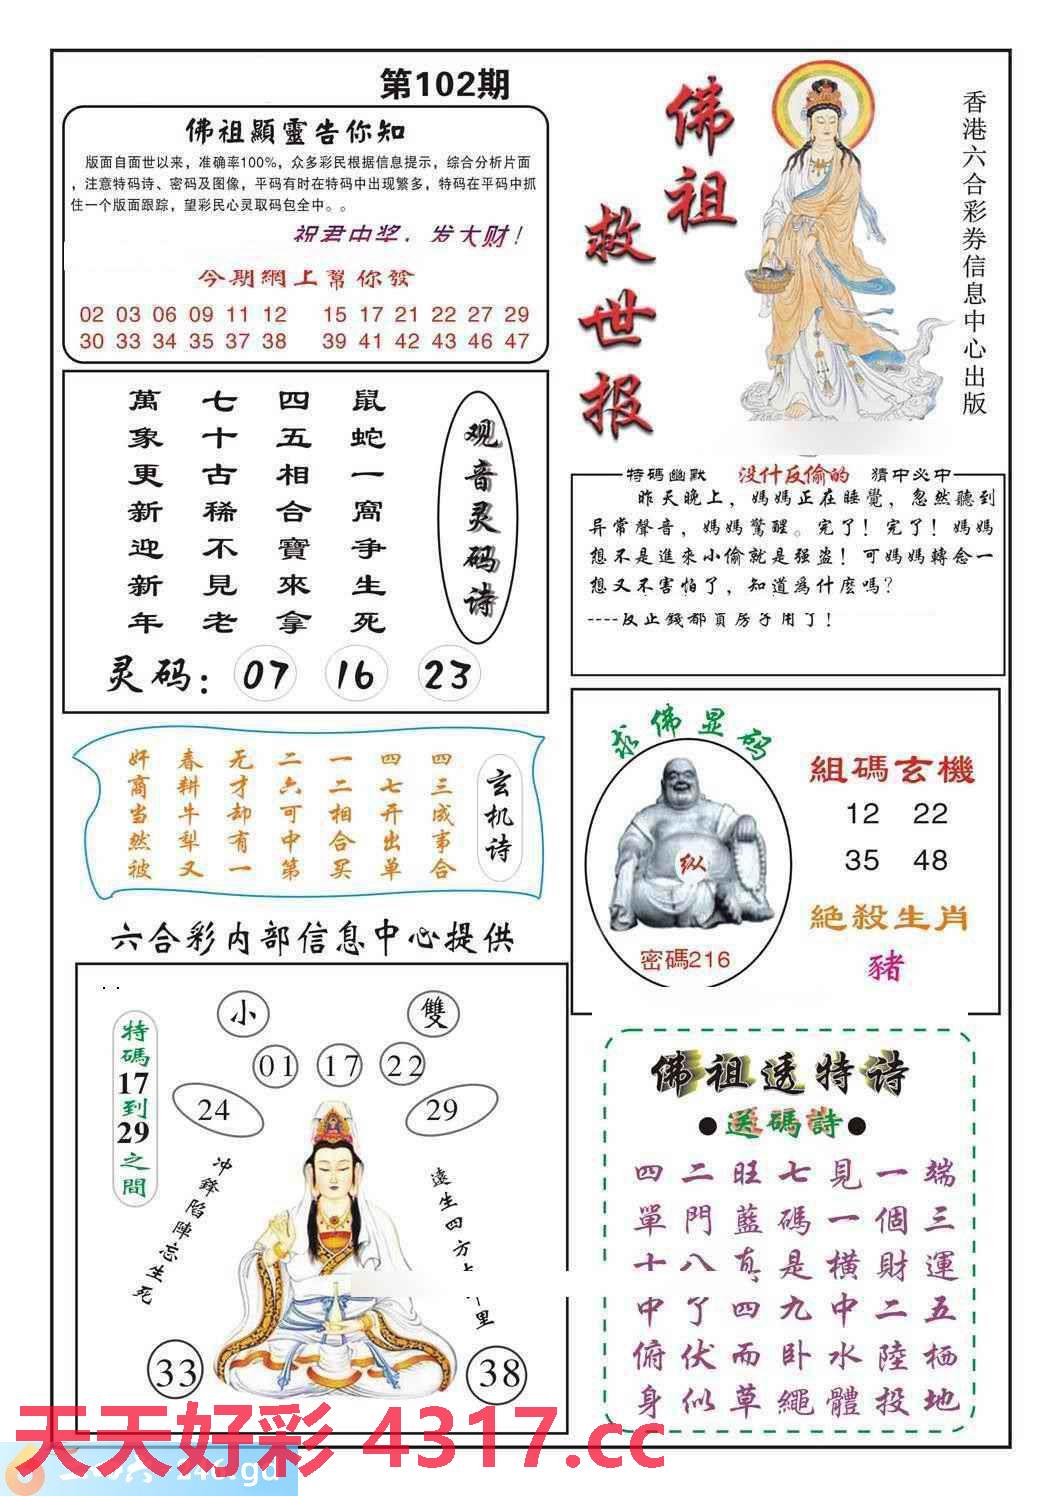 第102期
佛祖顯靈告你知
版面自面世以来，准确率100%，众多彩民根据信息提示，综合分析片面
，注意特码诗、密码及图像，平码有时在特码中出现繁多，特码在平码中抓
住一个版面跟踪，望彩民心灵取码包全中。。
祝君中奖，发大财！
今期網上幫你發
02 03 06 09 11 12 15 17 21 22 27 29
30 33 34 35 37 38 39 41 42 43 46 47
佛祖救世报
香港六合彩券信息中心出版
观音灵码诗
鼠蛇一窩争生死
四五相合寶來拿
七十古稀不見老
萬象更新迎新年
灵码：07 16 23
特碼幽默 没什反偷的 猜中必中
昨天晚上，媽媽正在睡覺，忽然聽到
异常聲音，媽媽驚醒。完了！完了！媽媽
想不是進來小偷就是强盗！可媽媽轉念一
想又不害怕了，知道為什麼嗎？
----反正錢都買房子用了！
玄机诗
四三成事合
四七开出单
一二相合买
二六可中第
无才却有一
春耕牛犁又
奸商当然被
求佛显码
纵
密碼216
組碼玄機
12 22
35 48
絕殺生肖
豬
六合彩内部信息中心提供
小 雙
01 17 22
24 29
特碼17到29之間
冲鋒陷陣忘生死
遠生四方
里
33 38
佛祖透特诗
●送碼詩●
四二旺七見一端
單門藍碼一個三
十八真是横財運
中了四九中二五
俯伏而卧水陸栖
身似草繩體投地
天天好彩 4317.cc
246.gd